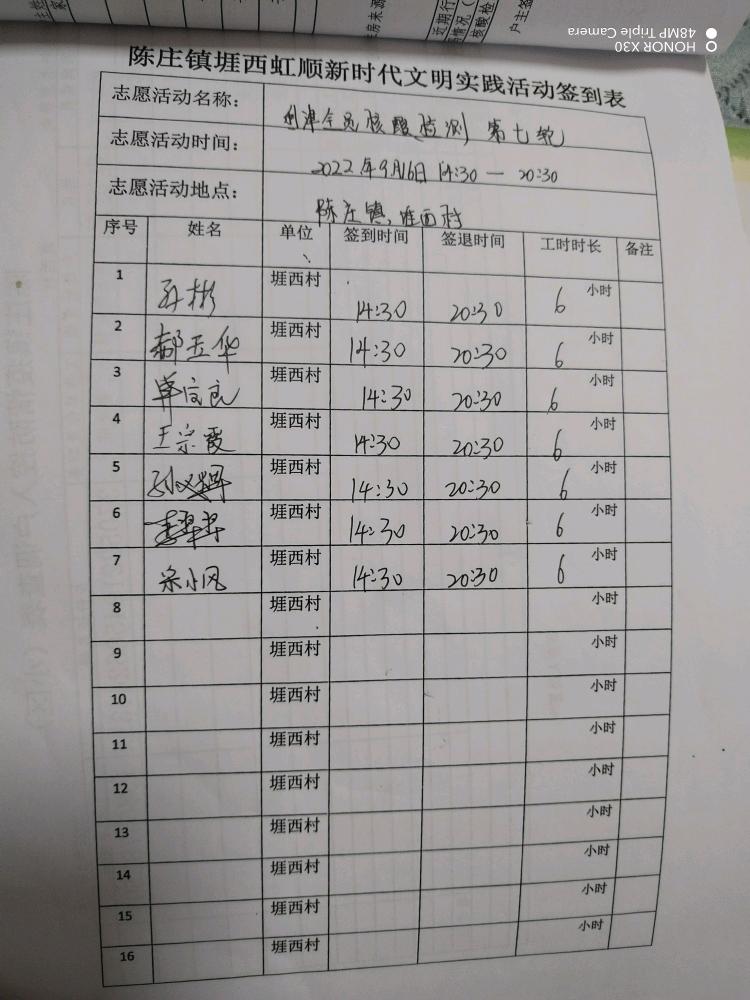 HONOR X30
48MP Triple Camera
陈庄镇堐西虹顺新时代文明实践活动签到表
志愿活动名称： 利津全员核酸检测 第七轮
志愿活动时间： 2022年9月16日 14:30 — 20:30
志愿活动地点： 陈庄镇、堐西村
序号 姓名 单位 签到时间 签退时间 工时时长 备注
1 孙彬 堐西村 14:30 20:30 6 小时
2 郝玉华 堐西村 14:30 20:30 6 小时
3 堐西村 14:30 20:30 6 小时
4 王宗霞 堐西村 14:30 20:30 6 小时
5 堐西村 14:30 20:30 6 小时
6 堐西村 14:30 20:30 6 小时
7 宋小风 堐西村 14:30 20:30 6 小时
8 堐西村 小时
9 堐西村 小时
10 堐西村 小时
11 堐西村 小时
12 堐西村 小时
13 堐西村 小时
14 堐西村 小时
15 堐西村 小时
16 堐西村 小时